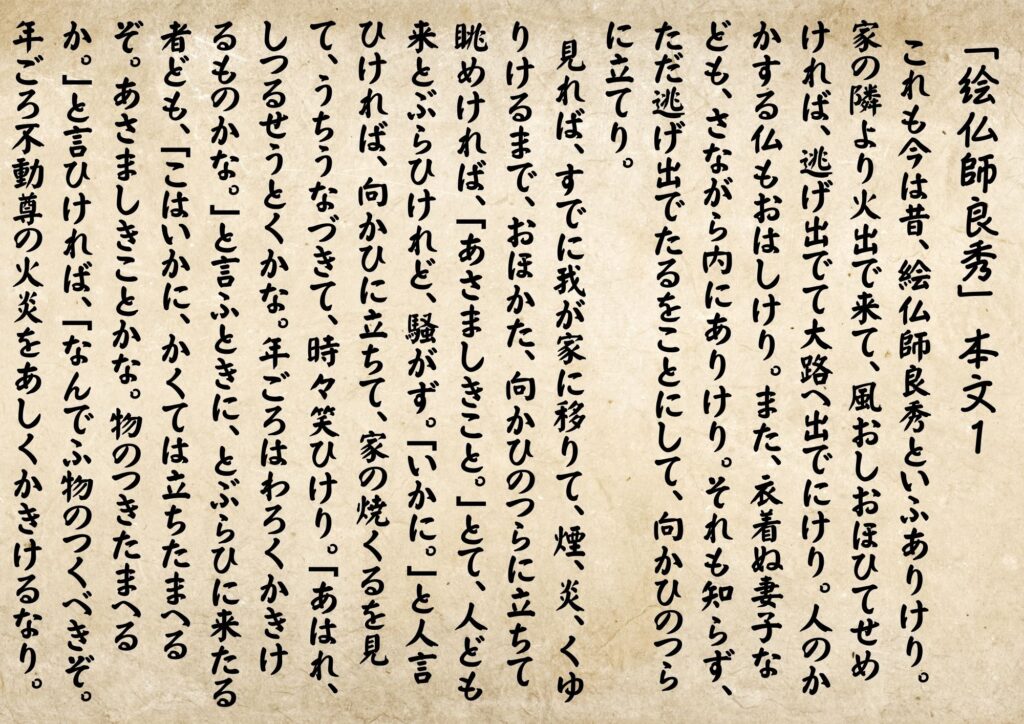 「絵仏師良秀」 本文1
これも今は昔、絵仏師良秀といふありけり。
家の隣より火出で来て、風おしおほひてせめ
ければ、逃げ出でて大路へ出でにけり。人のか
かする仏もおはしけり。また、衣着ぬ妻子な
ども、さながら内にありけり。それも知らず、
ただ逃げ出でたるをことにして、向かひのつら
に立てり。
見れば、すでに我が家に移りて、煙、炎、くゆ
りけるまで、おほかた、向かひのつらに立ちて
眺めければ、「あさましきこと。」とて、人ども
来とぶらひけれど、騒がず。「いかに。」と人言
ひければ、向かひに立ちて、家の焼くるを見
て、うちうなづきて、時々笑ひけり。「あはれ、
しつるせうとくかな。年ごろはわろくかきけ
るものかな。」と言ふときに、とぶらひに来たる
者ども、「こはいかに、かくては立ちたまへる
ぞ。あさましきことかな。物のつきたまへる
か。」と言ひければ、「なんでふ物のつくべきぞ。
年ごろ不動尊の火炎をあしくかきけるなり。